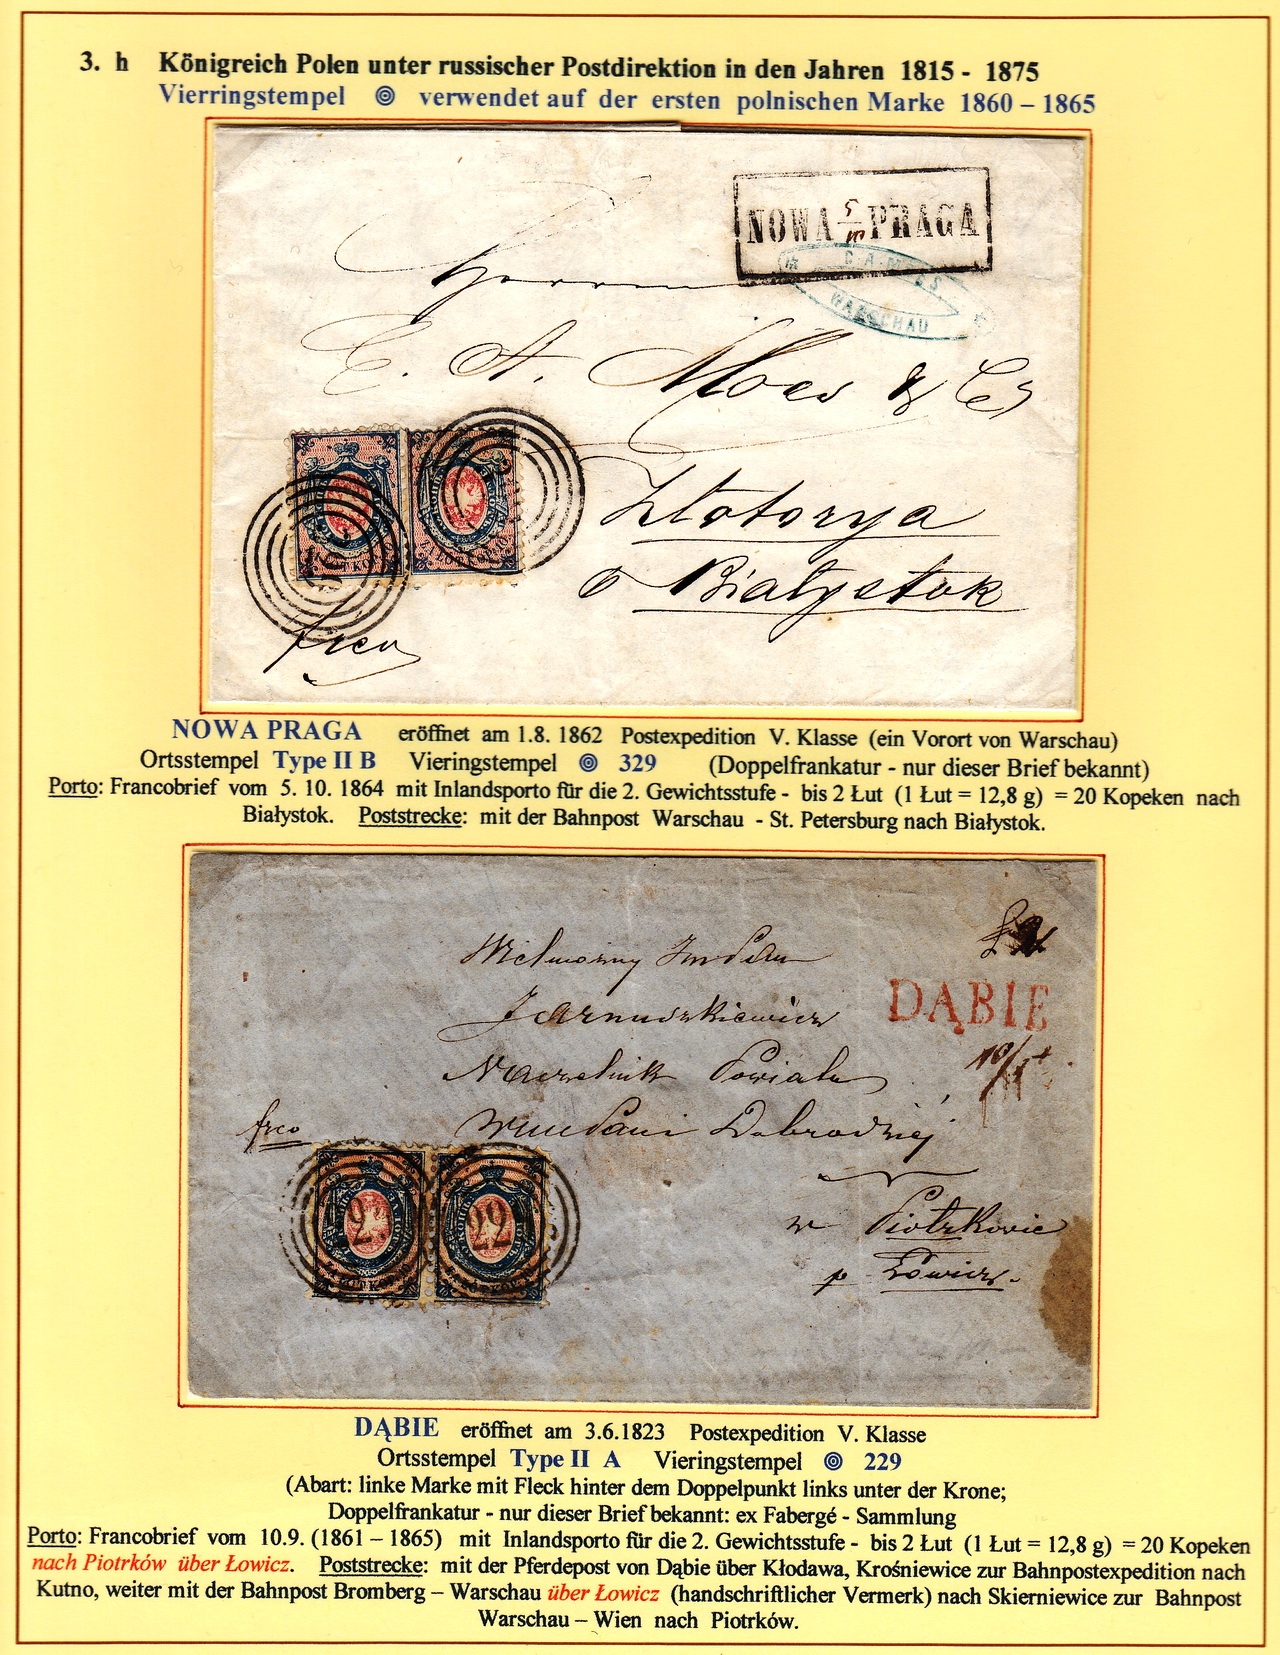 3. h Königreich Polen unter russischer Postdirektion in den Jahren 1815 - 1875
Vierringstempel verwendet auf der ersten polnischen Marke 1860 – 1865
NOWA 5/10 PRAGA
C. A. MOES
WARSCHAU
Herrn
C. A. Moes & Co
Złotorya
Białystok
frco
NOWA PRAGA eröffnet am 1.8. 1862 Postexpedition V. Klasse (ein Vorort von Warschau)
Ortsstempel Type II B Vieringstempel 329 (Doppelfrankatur - nur dieser Brief bekannt)
Porto: Francobrief vom 5. 10. 1864 mit Inlandsporto für die 2. Gewichtsstufe - bis 2 Łut (1 Łut = 12,8 g) = 20 Kopeken nach
Białystok. Poststrecke: mit der Bahnpost Warschau - St. Petersburg nach Białystok.
Wielmożny Jm Pan
Jarnuszkiewicz
DĄBIE
Naczelnik Powiatu
frco
Dobrodziej
22
w Piotrkowie
p Łowicz.
DĄBIE eröffnet am 3.6.1823 Postexpedition V. Klasse
Ortsstempel Type II A Vieringstempel 229
(Abart: linke Marke mit Fleck hinter dem Doppelpunkt links unter der Krone;
Doppelfrankatur - nur dieser Brief bekannt: ex Fabergé - Sammlung
Porto: Francobrief vom 10.9. (1861 – 1865) mit Inlandsporto für die 2. Gewichtsstufe - bis 2 Łut (1 Łut = 12,8 g) = 20 Kopeken
nach Piotrków über Łowicz. Poststrecke: mit der Pferdepost von Dąbie über Kłodawa, Krośniewice zur Bahnpostexpedition nach
Kutno, weiter mit der Bahnpost Bromberg – Warschau über Łowicz (handschriftlicher Vermerk) nach Skierniewice zur Bahnpost
Warschau – Wien nach Piotrków.